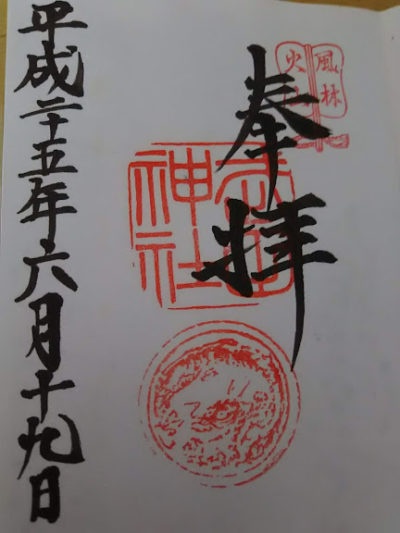 風林
火
奉拝
神社
平成二十五年六月十九日